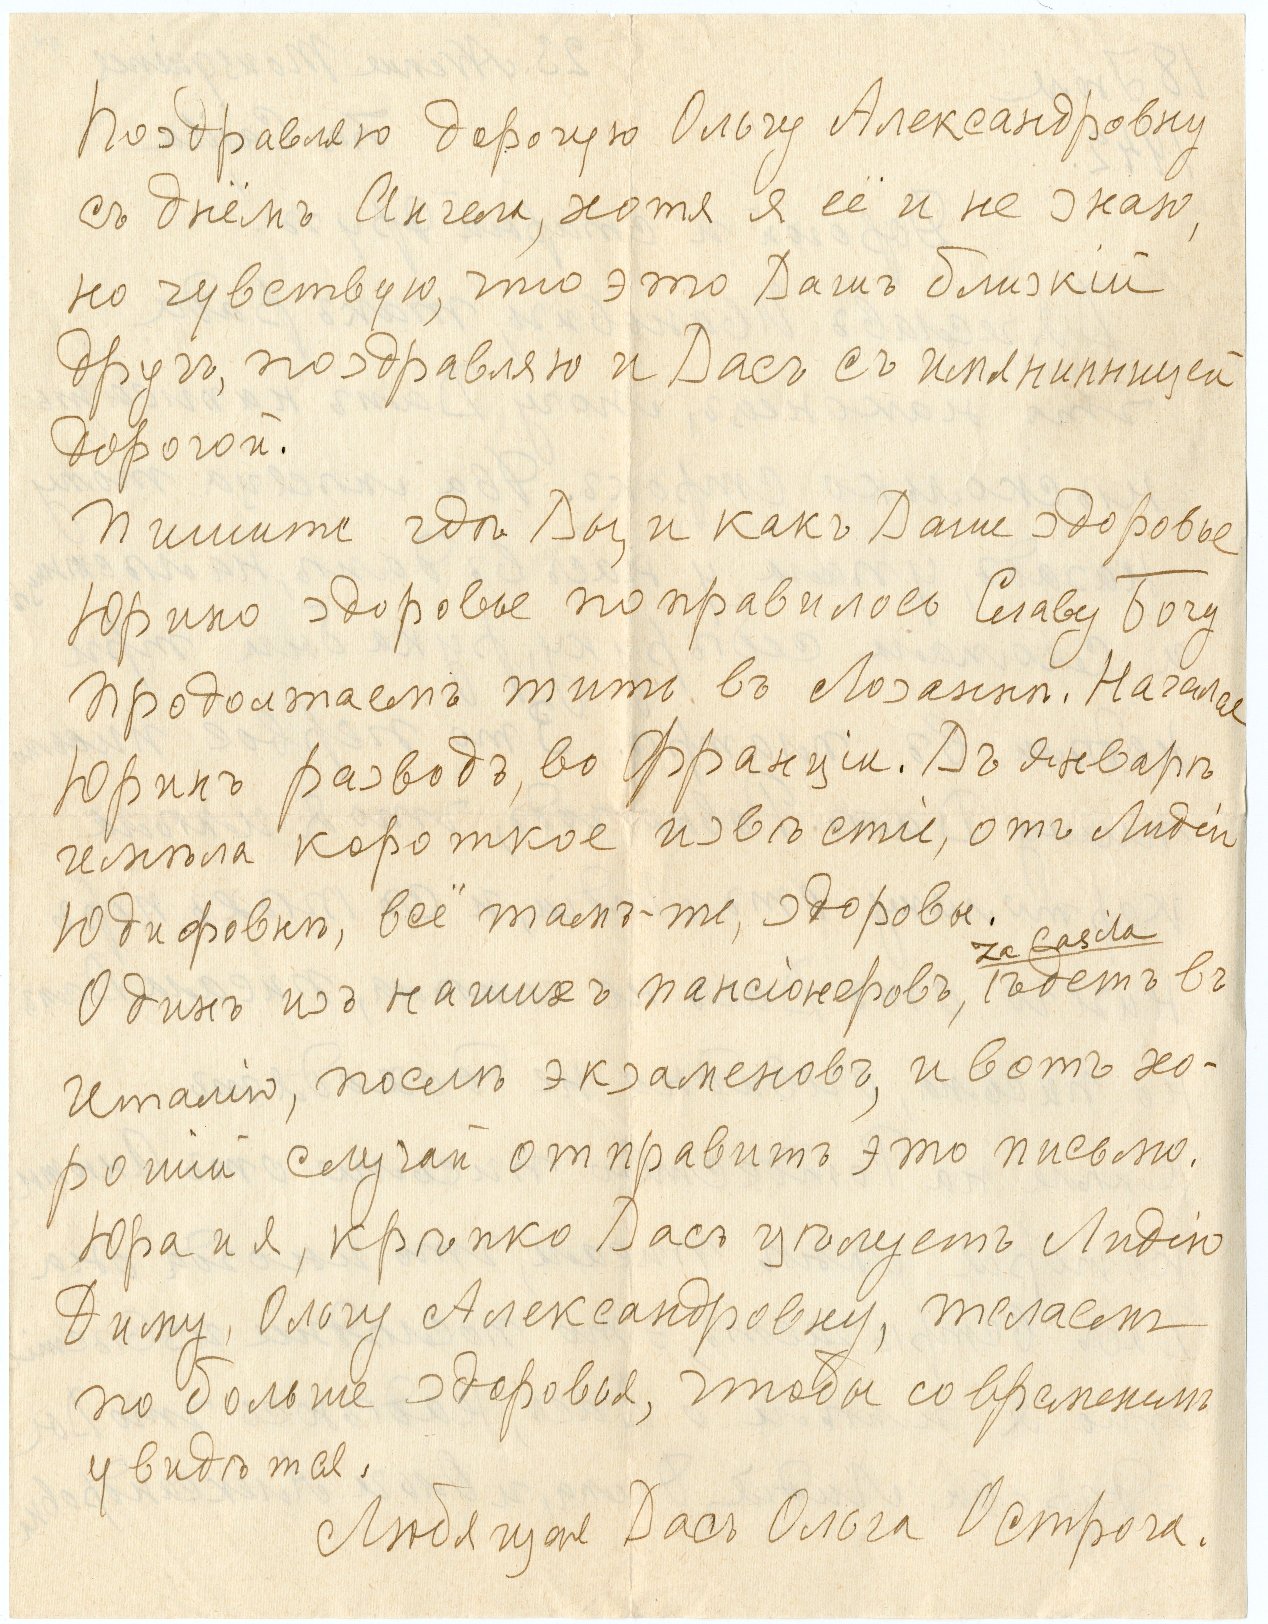 Поздравляю дорогую Ольгу Александровну
съ днёмъ Ангела, хотя я её и не знаю,
но чувствую, что это Вашъ близкій
другъ, поздравляю и Васъ съ имянинницей
дорогой.
Пишите гдѣ Вы, и какъ Ваше здоровье
Юрино здоровье поправилось Славу Богу
продолжаемъ жить въ Лозаннѣ. Начался
Юринъ разводъ, во Франціи. Въ январѣ
имѣла короткое извѣстіе, отъ Лидіи
Юдифовны, всё тамъ-же, здоровы.
Одинъ изъ нашихъ пансіонеровъ, ѣдетъ въ
Италію, послѣ экзаменовъ, и вотъ хо-
рошій случай отправить это письмо.
Юра и я, крѣпко Васъ цѣлуемъ Лидію
Диму, Ольгу Александровну, желаемъ
по больше здоровья, чтобы со временемъ
увидѣтся.
Любящая Васъ Ольга Острога.